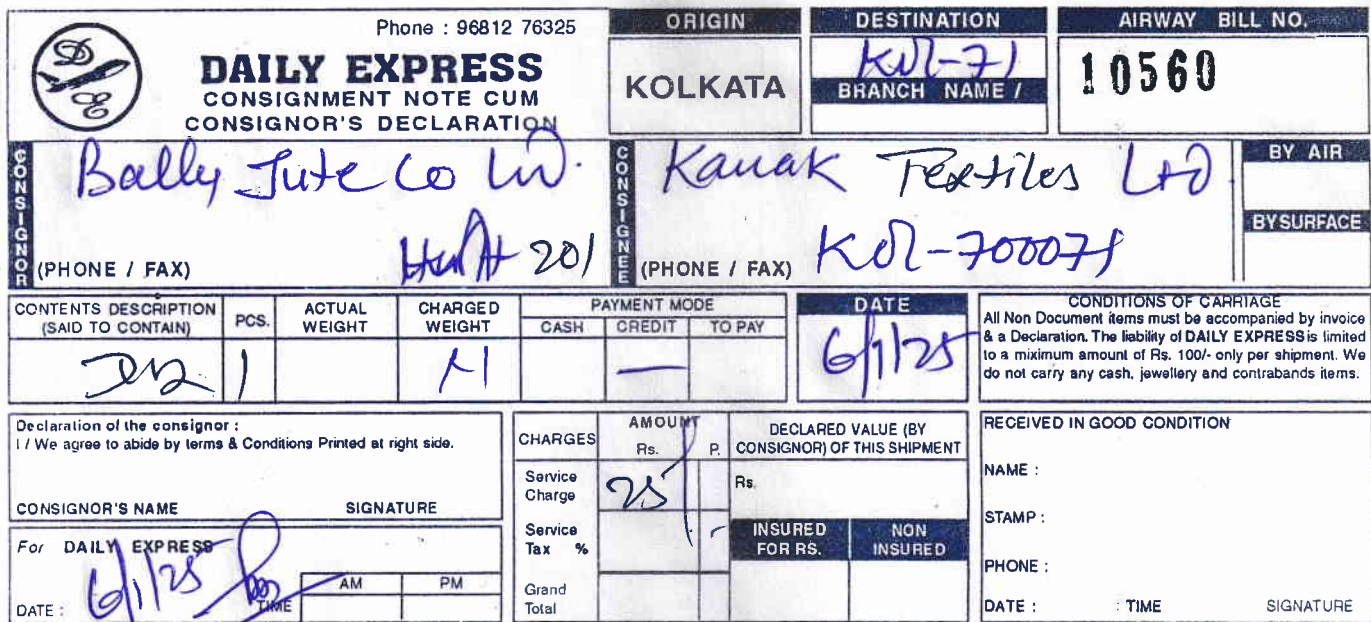 Phone : 96812 76325
DAILY EXPRESS
CONSIGNMENT NOTE CUM
CONSIGNOR'S DECLARATION
ORIGIN
KOLKATA
DESTINATION
Kol-71
BRANCH NAME /
AIRWAY BILL NO.
10560
CONSIGNOR
Bally Jute Co Ltd.
201
(PHONE / FAX)
CONSIGNEE
Kanak Textiles Ltd
(PHONE / FAX) Kol-700071
BY AIR
BY SURFACE
CONTENTS DESCRIPTION
(SAID TO CONTAIN)
PCS.
1
ACTUAL
WEIGHT
CHARGED
WEIGHT
PAYMENT MODE
CASH CREDIT TO PAY
—
DATE
6/1/25
CONDITIONS OF CARRIAGE
All Non Document items must be accompanied by invoice
& a Declaration. The liability of DAILY EXPRESS is limited
to a miximum amount of Rs. 100/- only per shipment. We
do not carry any cash, jewellery and contrabands items.
Declaration of the consignor :
I / We agree to abide by terms & Conditions Printed at right side.
CONSIGNOR'S NAME SIGNATURE
For DAILY EXPRESS
6/1/25
DATE : TIME
AM PM
CHARGES
AMOUNT
Rs. P.
Service
Charge
25
Service
Tax %
Grand
Total
DECLARED VALUE (BY
CONSIGNOR) OF THIS SHIPMENT
Rs.
INSURED
FOR RS.
NON
INSURED
RECEIVED IN GOOD CONDITION
NAME :
STAMP :
PHONE :
DATE : : TIME SIGNATURE